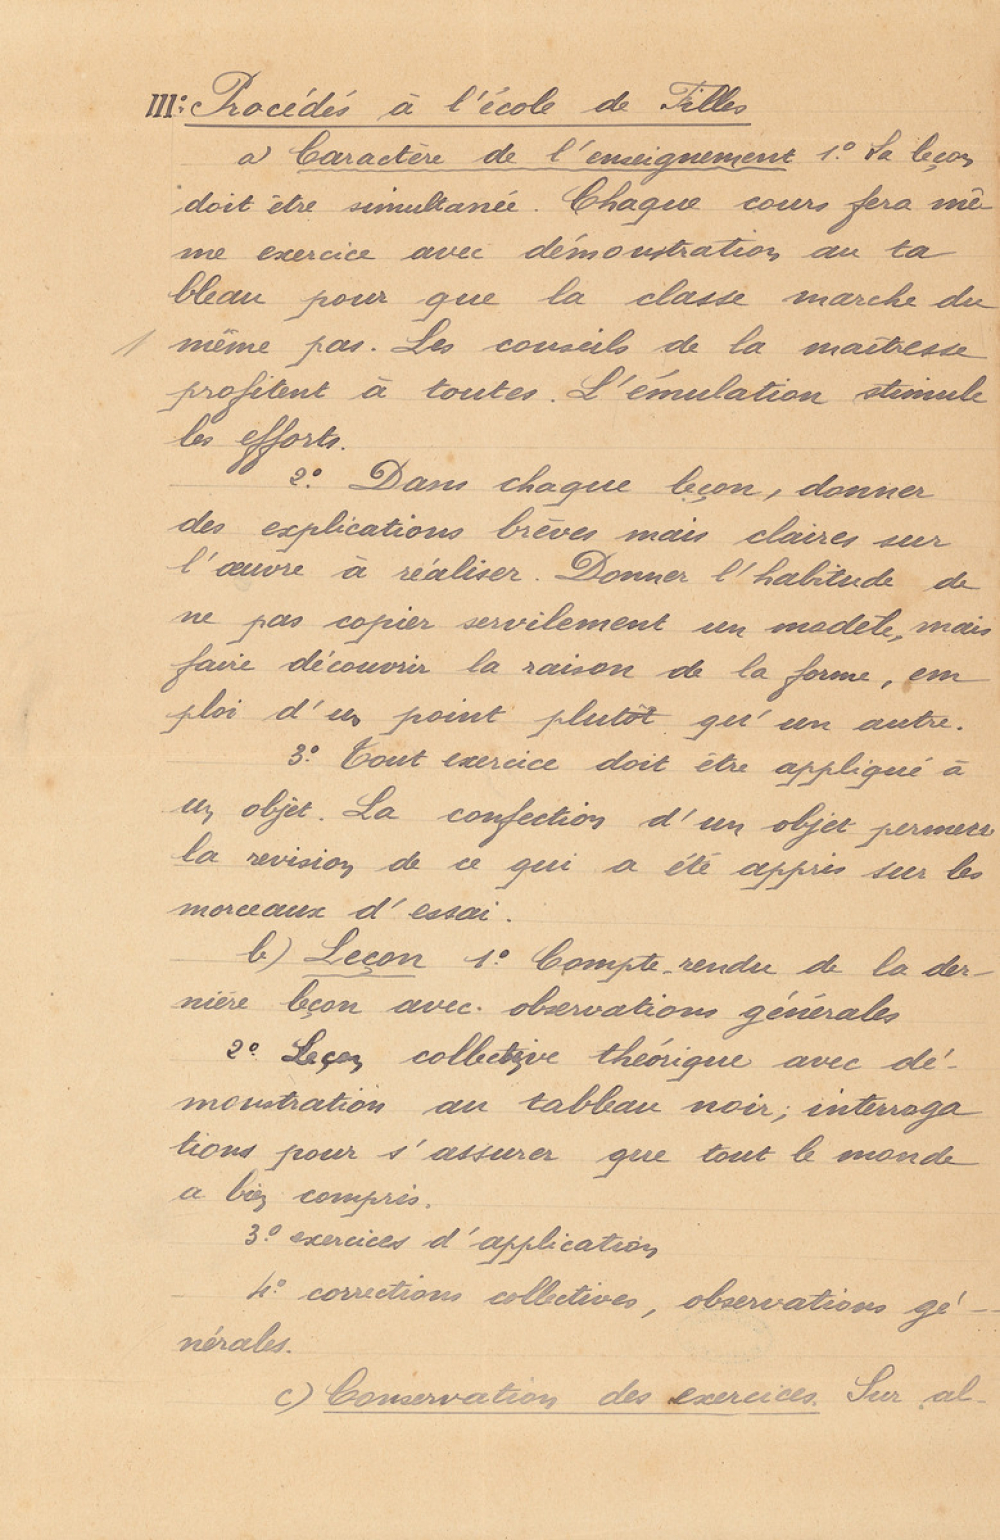 III: Procédés à l'école de Filles
a) Caractère de l'enseignement 1.° La leçon
doit être simultanée. Chaque cours fera mê
me exercice avec démonstration au ta
bleau pour que la classe marche du
même pas. Les conseils de la maîtresse
profitent à toutes. L'émulation stimule
les efforts.
2.° Dans chaque leçon, donner
des explications brèves mais claires sur
l'œuvre à réaliser. Donner l'habitude de
ne pas copier servilement un modèle, mais
faire découvrir la raison de la forme, em
ploi d'un point plutôt qu'un autre.
3.° Tout exercice doit être appliqué à
un objet. La confection d'un objet permet
la revision de ce qui a été appris sur les
morceaux d'essai.
b) Leçon 1.° Compte-rendu de la der-
nière leçon avec observations générales
2.° Leçon collective théorique avec dé-
monstration au tableau noir; interroga
tions pour s'assurer que tout le monde
a bien compris.
3.° exercices d'application
4.° corrections collectives, observations gé-
nérales.
c) Conservation des exercices. Sur al-